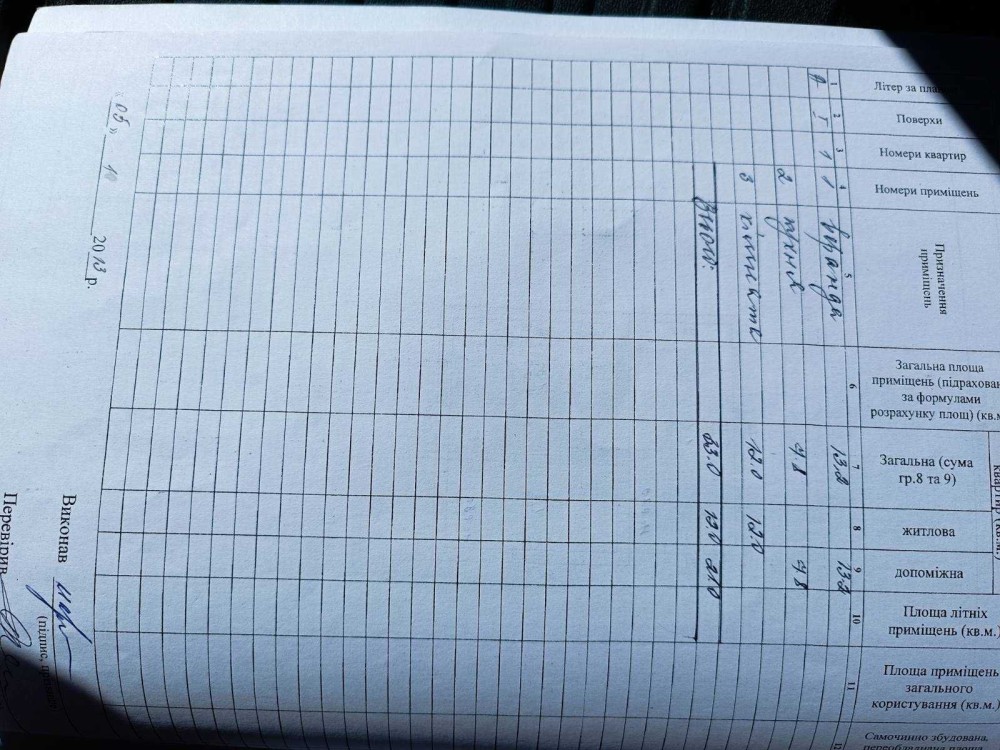 Літер за
Поверхи
Номери квартир
Номери приміщень
Призначення
приміщень
Загальна площа
приміщень
за формулами
розрахунку площ)
Загальна (сума
гр.8 та 9)
житлова
допоміжна
Площа літніх
приміщень (кв.м.)
Площа приміщень
загального
користування (кв.м.)
Самочинно збудована,
1 2 3 4 5 6 7 8 9 10 11 12
А I 1 1 веранда 13.2 13.2
2 кухня 7.8 7.8
3 кімната 12.0 12.0
33.0 12.0 21.0
"05" 10 2013 р.
Виконав
(підпис,
Перевірив